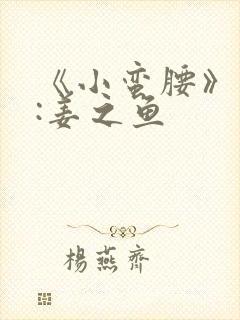 《小蛮腰》
:姜之鱼
楊燕齊